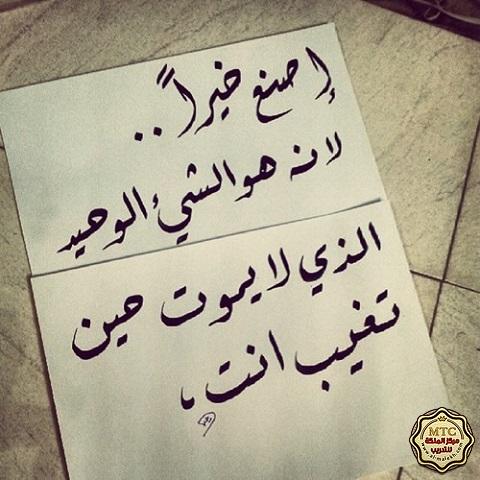 إصنع خيراً..
لانه هو الشيء الوحيد
الذي لا يموت حين
تغيب انت،
MTC
مركز الملكة
للتدريب